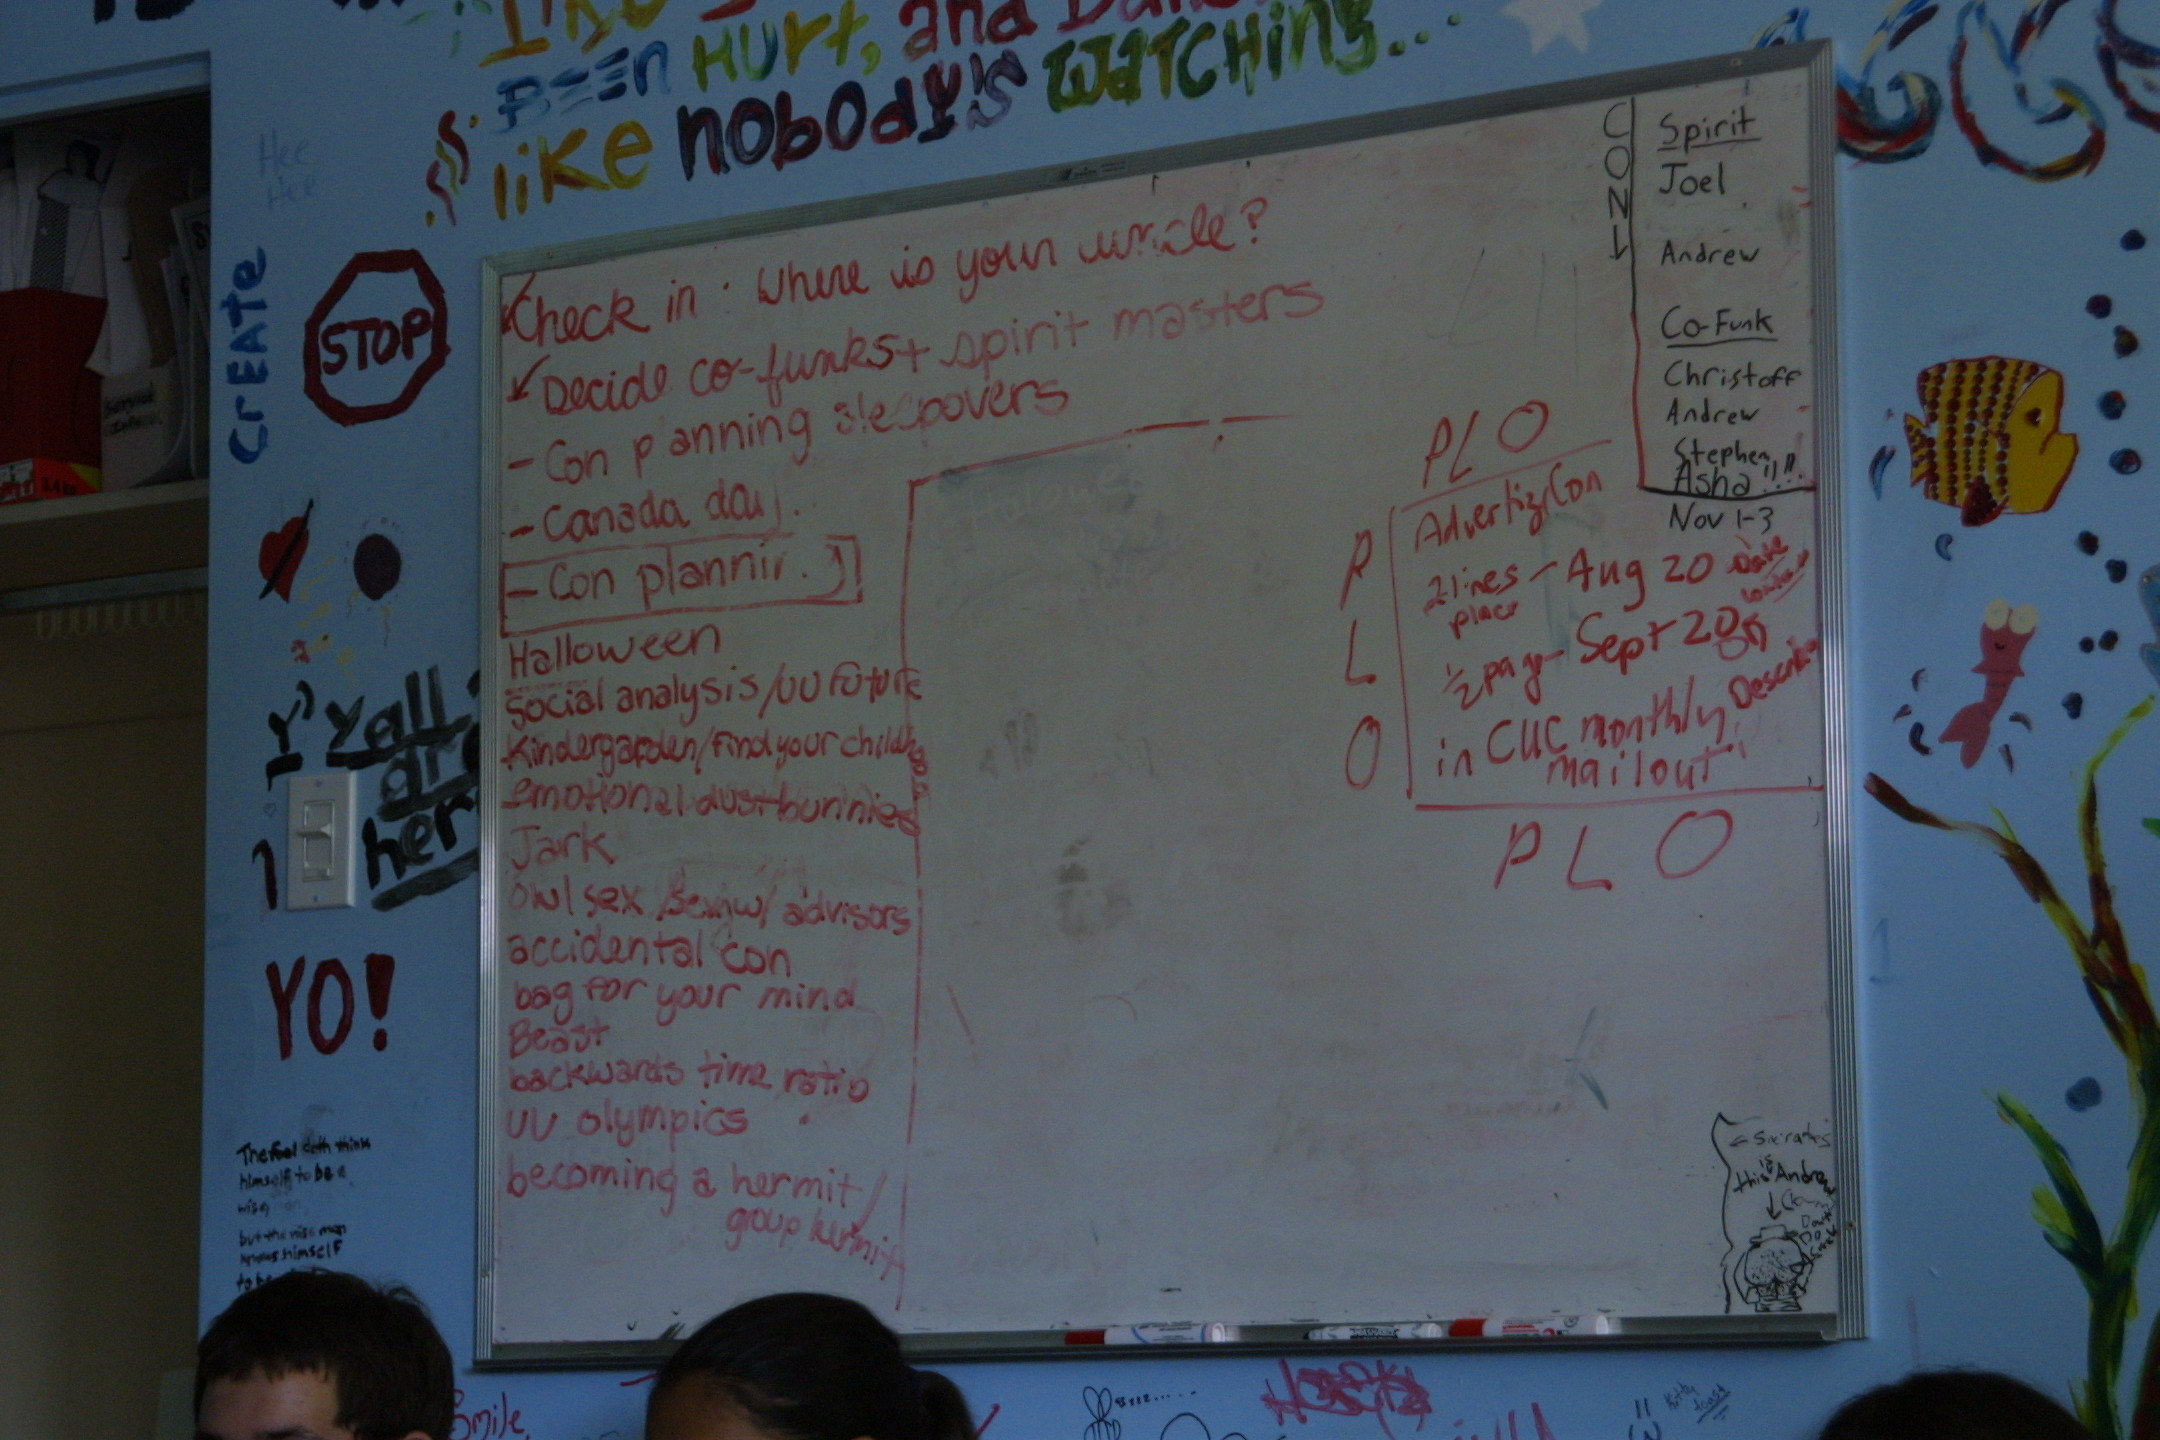 and
BEEN HURT,
like nobody's watching...
Hee
Hee
CrEATe
STOP
Y'
Y'all
are
her
1
YO!
The fool doth think
himself to be a
wise
but the wise man
knows himself
to be
Check in: Where is your uncle?
Decide co-funks + spirit masters
- Con planning sleepovers
- Canada day.
- Con planning
Halloween
Social analysis/UU Future
Kindergarden/Find your childhood
emotional dustbunnies
Jark
Owl sex /Sexjw/ advisors
accidental con
bag for your mind
Beast
backwards time ratio
UU olympics
becoming a hermit/
group hermit
CON
Spirit
Joel
Andrew
Co-Funk
Christoff
Andrew
Stephen
Asha!!!!
Nov 1-3
PLO
PLO
Advertiz Con
2 lines - Aug 20 Date
place
1/2 page - Sept 20
in CUC monthly
mailout
PLO
← Socrates
this is Andrew
Smile
Kitty
toast